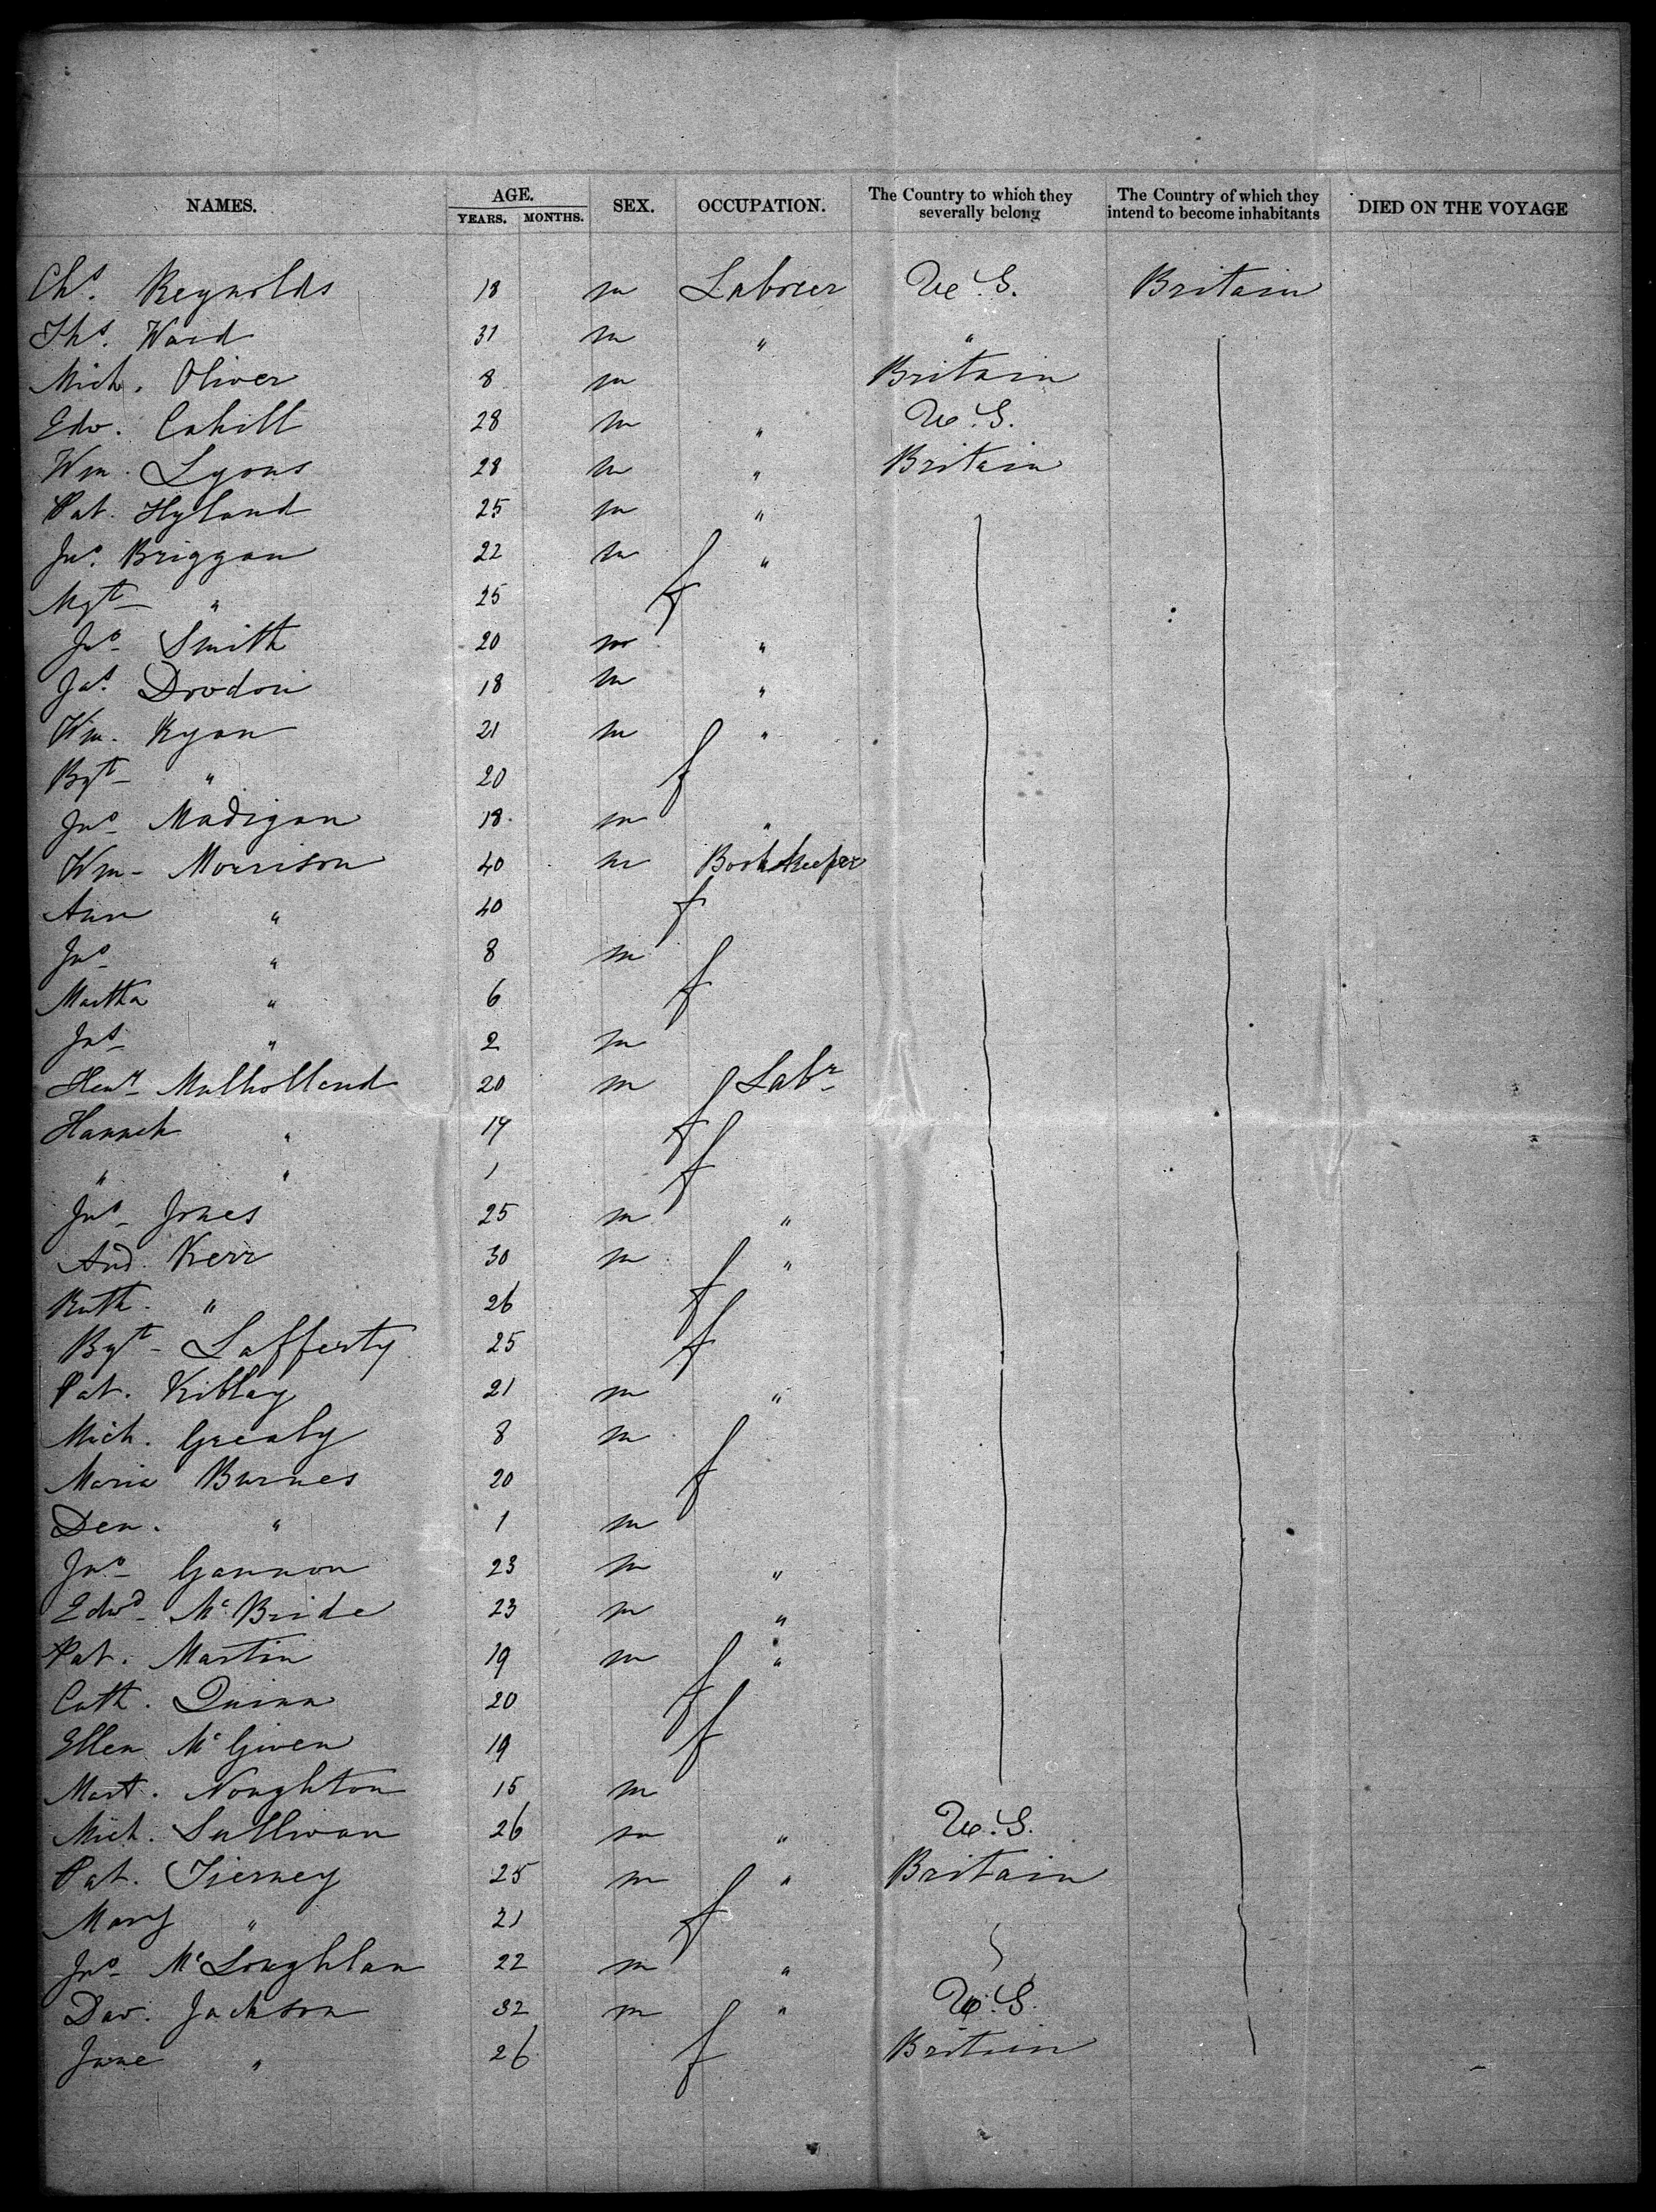 NAMES. AGE. YEARS. MONTHS. SEX. OCCUPATION. The Country to which they severally belong The Country of which they intend to become inhabitants DIED ON THE VOYAGE
Chs. Reynolds 18 m Laborer U.S. Britain
Ths. Ward 31 m " "
Mich. Oliver 8 m Britain
Edw. Cahill 28 m " U.S.
Wm. Lyons 28 m " Britain
Pat. Hyland 25 m "
Jno. Briggan 22 m "
Mgt " 25 f
Jno Smith 20 m "
Jas. 18 m "
Wm. Ryan 21 m "
Bgt " 20 f
Jno Madigan 18 m "
Wm Morrison 40 m Bookkeeper
Ann " 40 f
Jno " 8 m
Martha " 6 f
Jas " 2 m
Heny Mulholland 20 m Labr
Hannah " 19 f
" " 1 f
Jno Jones 25 m "
And. Kerr 30 m "
Ruth. " 26 f
Bgt Lafferty 25 f
Pat. 21 m "
Mich. Grealy 8 m
Maria Burnes 20 f
Den. " 1 m
Jno Gannon 23 m "
Edwd McBride 23 m "
Pat. Martin 19 m "
Cath. Quinn 20 f
Ellen McGiven 19 f
Mart. Noughton 15 m
Mich. Sullivan 26 m " U.S.
Pat. Tierney 25 m " Britain
Mary " 21 f
Jno McLoughlan 22 m "
Dav. Jackson 32 m " U.S.
Jane " 26 f Britain